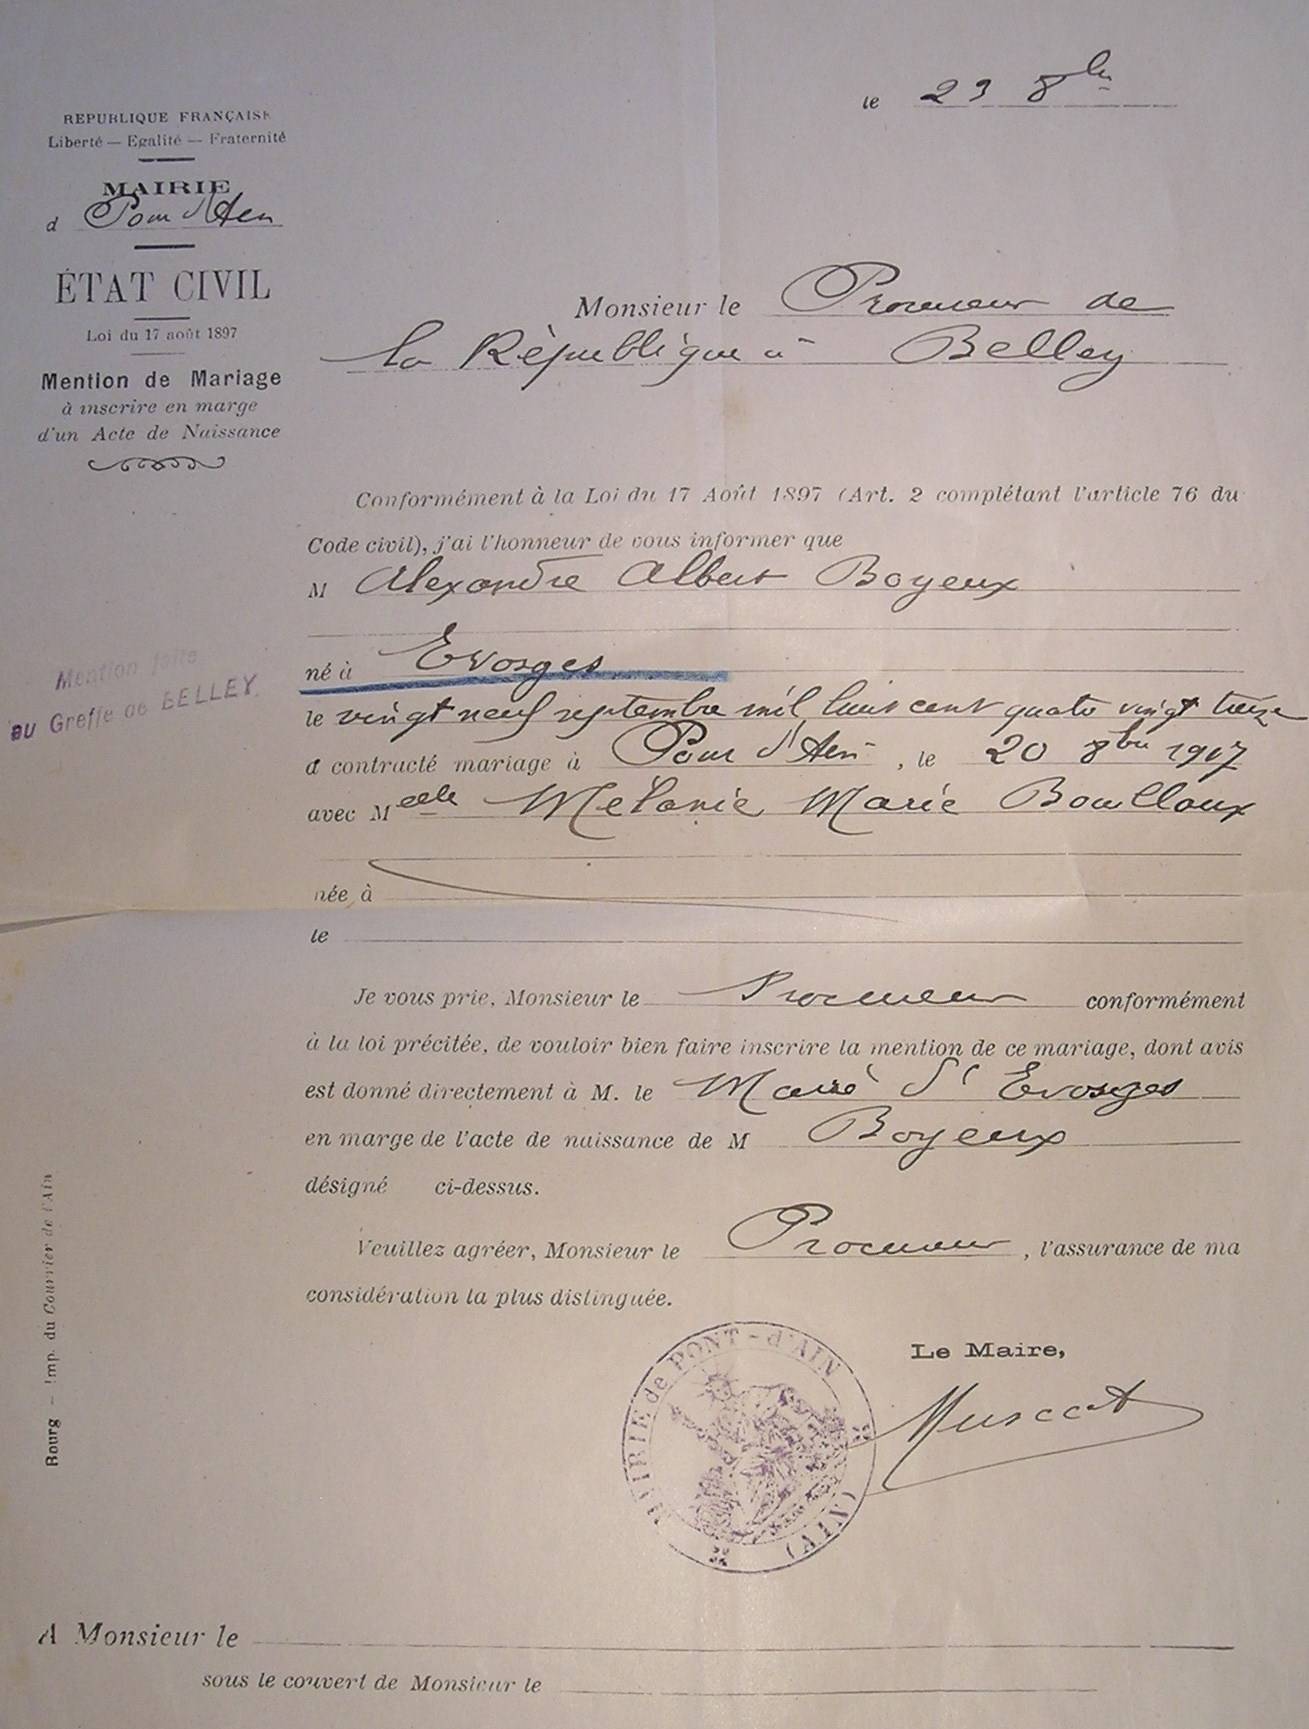 le 23 8bre
REPUBLIQUE FRANÇAISE
Liberté — Egalité — Fraternité
MAIRIE
d Pont d'Ain
ÉTAT CIVIL
Loi du 17 août 1897
Mention de Mariage
à inscrire en marge
d'un Acte de Naissance
Monsieur le Procureur de
la République à Belley
Conformément à la Loi du 17 Août 1897 (Art. 2 complétant l'article 76 du
Code civil), j'ai l'honneur de vous informer que
M Alexandre Albert Boyeux
né à Evosges
le vingt neuf septembre mil huit cent quatre vingt treize
a contracté mariage à Pont d'Ain, le 20 8bre 1917
avec Melle Mélanie Marie Bouilloux
née à
le
Mention faite
au Greffe de BELLEY.
Je vous prie, Monsieur le Procureur conformément
à la loi précitée, de vouloir bien faire inscrire la mention de ce mariage, dont avis
est donné directement à M. le Maire d'Evosges
en marge de l'acte de naissance de M Boyeux
désigné ci-dessus.
Veuillez agréer, Monsieur le Procureur, l'assurance de ma
considération la plus distinguée.
Le Maire,
Muscat
MAIRIE de PONT-d'AIN
(AIN)
Bourg — Imp. du Courrier de l'Ain
A Monsieur le
sous le couvert de Monsieur le